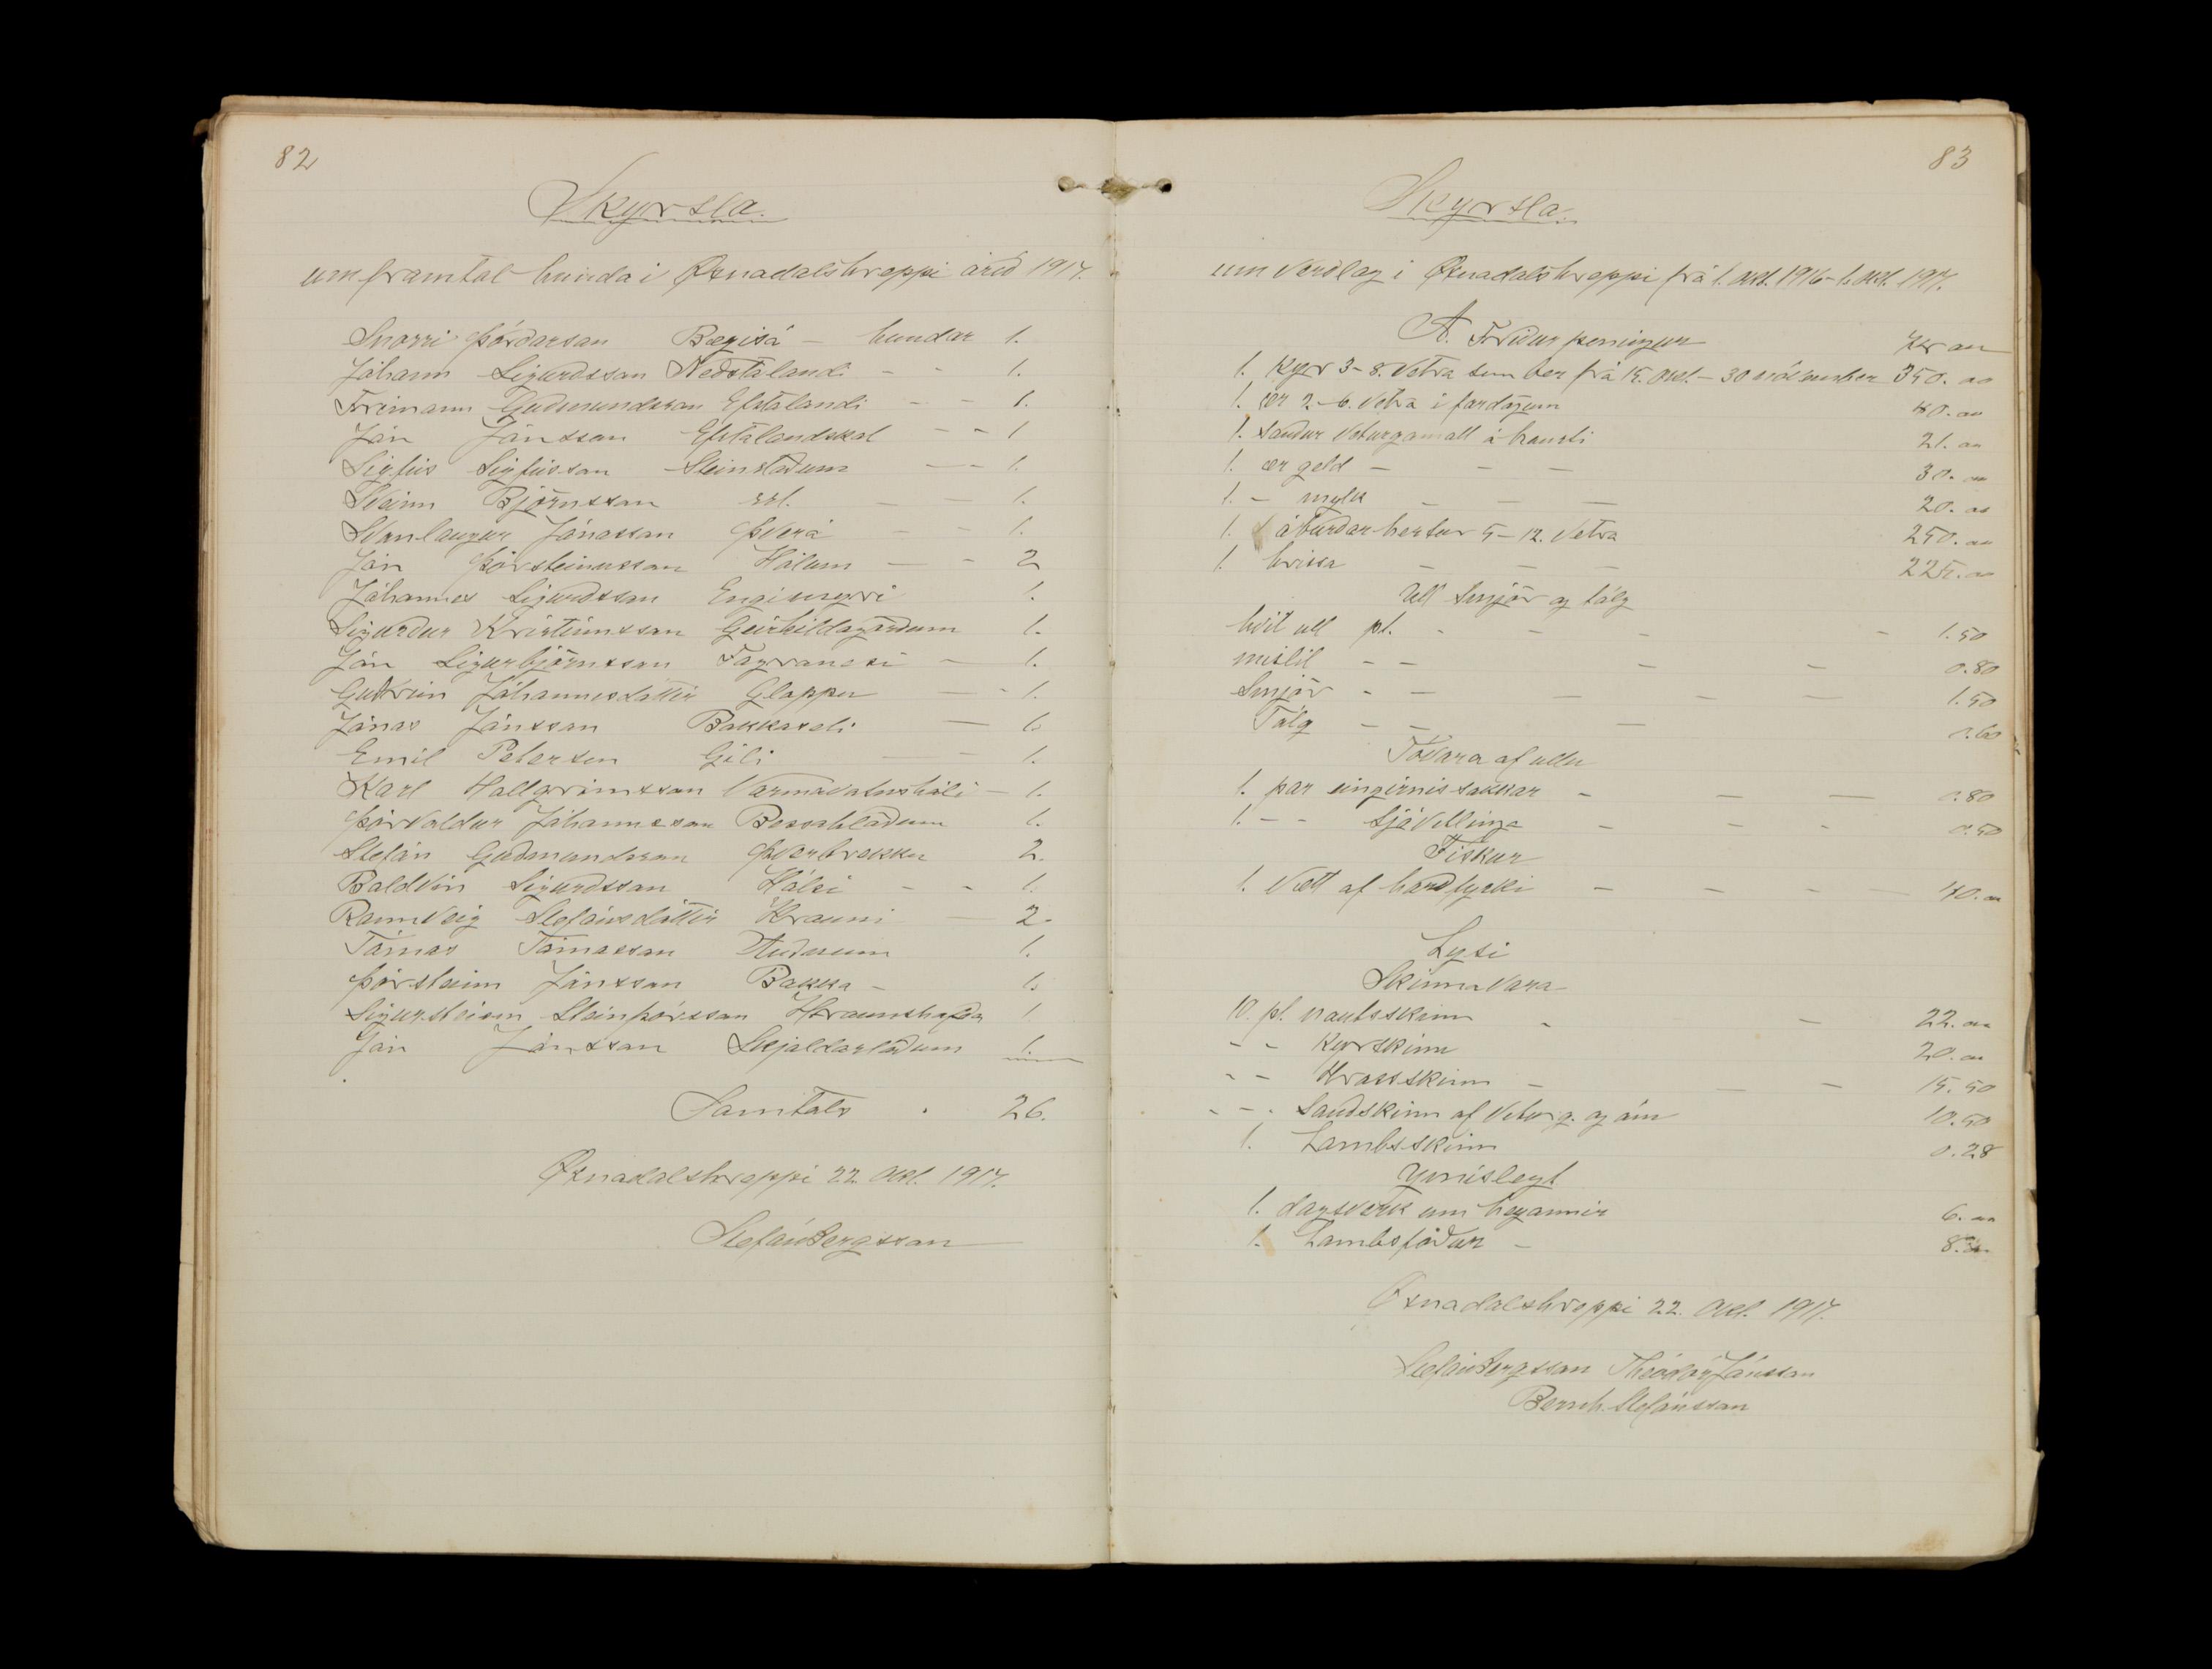 82
Skyrsla.
um framtal hunda í Øxnadalshreppi árið 1917.
Snorri Þórðarson Bægisá - hundar 1.
Jóhann Sigurðsson Neðstalandi - - 1.
Frímann Guðmundsson Efstalandi - - 1.
Jón Jónsson Efstalandskot - - 1
Sigfús Sigfússon Steinstöðum - - 1.
Sveinn Björnsson sst. - - 1.
Svanlaugur Jónasson Þverá - - 1.
Jón Þórsteinsson Hólum - - 2
Jóhannes Sigurðsson Engimyri 1.
Sigurður Kristinsson Geirhildagörðum 1.
Jón Sigurbjörnsson Fagranesi - 1.
Guðrún Jóhannesdóttir Gloppu - - 1.
Jónas Jónsson Bakkaseli - 1.
Emil Petersen Gili - - 1.
Karl Hallgrímsson Varmavatnshóli - 1.
Þórvaldur Jóhannesson Bessahlöðum 1.
Stefán Guðmundsson Þverbrekku 2.
Baldvin Sigurðsson Hálsi - - 1.
Rannveig Stefánsdóttir Hrauni - 2.
Tómas Tómasson Auðnum 1.
Þórsteinn Jónsson Bakka - 1.
Sigursteinn Steinþórsson Hraunshöfða 1.
Jón Jónsson Skjaldarstöðum 1.
Samtals . 26.
Øxnadalshreppi 22. Okt. 1917.
Stefán Bergsson
83
Skyrsla.
um Verðlag í Øxnadalshreppi frá 1. okt. 1916 - 1. okt. 1917.
A. Fríður peningur Kr au
1. Kyr 3-8. Vetra sem ber frá 15. Okt. - 30 nóvember 350. oo
1. ær 2.-6. Vetra í fardögum 40. oo
1. Sauður Veturgamall á hausti 21. oo
1. ær geld - - - 30. oo
1. - mylk - - - 20. oo
1. áburðarhestur 5-12. Vetra 250. oo
1. hrissa - - - 225. oo
Ull Smjör og tólg
hvít ull pd. - - - - 1.50
mislit - - - - 0.80
Smjör - - - - - 1.50
Tólg - - - 0.60
Tóvara af ullu
1. par eingirnissokkar - - - 0.80
1. - - Sjóvettinga - - - 0.50
Fiskur
1. Vætt af harðfyski - - - - 40. oo
Lysi
Skinnavara
10. pd. nautsskinn - - 22. oo
- - Kyrskinn 20. oo
- - Hrossskinn - - - 15.50
- - - Sauðskinn af Veturg. og ám 10.50
1. Lambsskinn 0.28
Ymislegt
1. dagsverk um heyannir 6. oo
1. Lambsfóður - 8. oo
Øxnadalshreppi 22. Okt. 1917.
Stefán Bergsson Theódór Jónsson
Bernh. Stefánsson